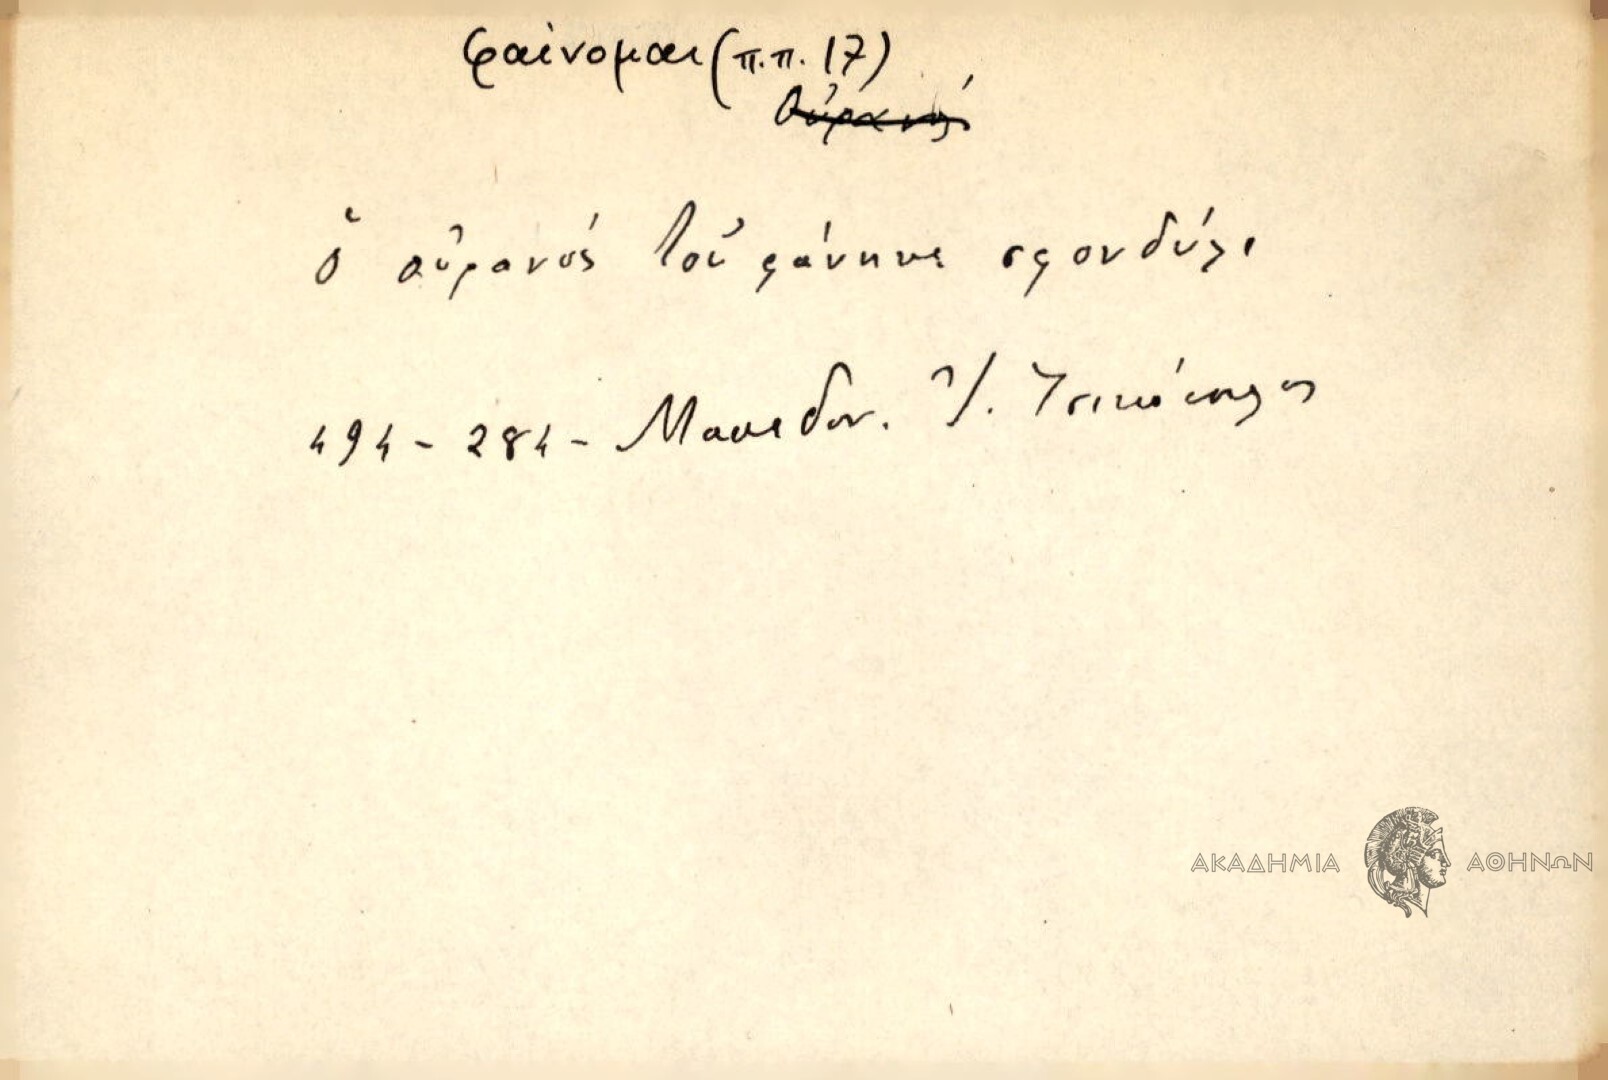 φαίνομαι (π.π. 17)
οὐρανός
ὁ οὐρανός τοῦ φάνηκε σφονδύλι
494 - 284 - Μακεδον. Ἰ.
ΑΚΑΔΗΜΙΑ ΑΘΗΝΩΝ